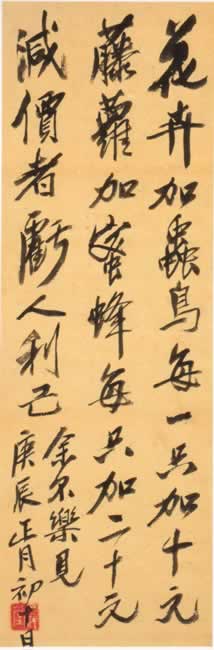 花卉加蟲鳥每一只加十元
藤蘿加蜜蜂每只加二十元
減價者虧人利己
余不樂見
庚辰正月初十日